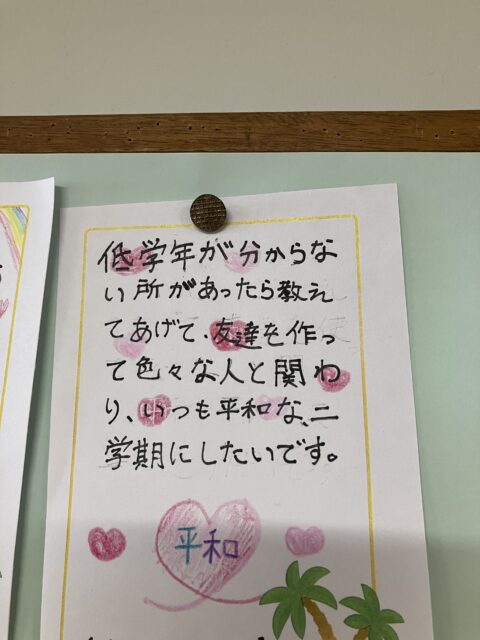 低学年が分からな
い所があったら教え
てあげて、友達を作っ
て色々な人と関わ
り、いつも平和な、二
学期にしたいです。
平和